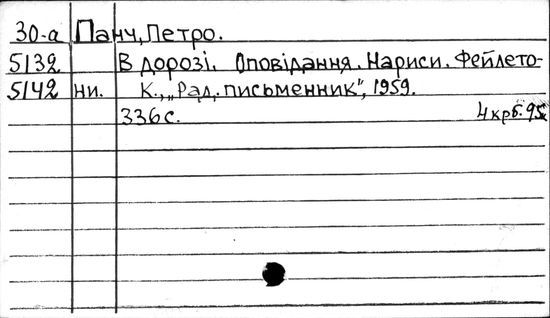 30-а Панч, Петро.
5132 В дорозі. Оповідання. Нариси. Фейлето-
5142 ни. К., „Рад. письменник", 1959.
336 с. 4 крб. 95